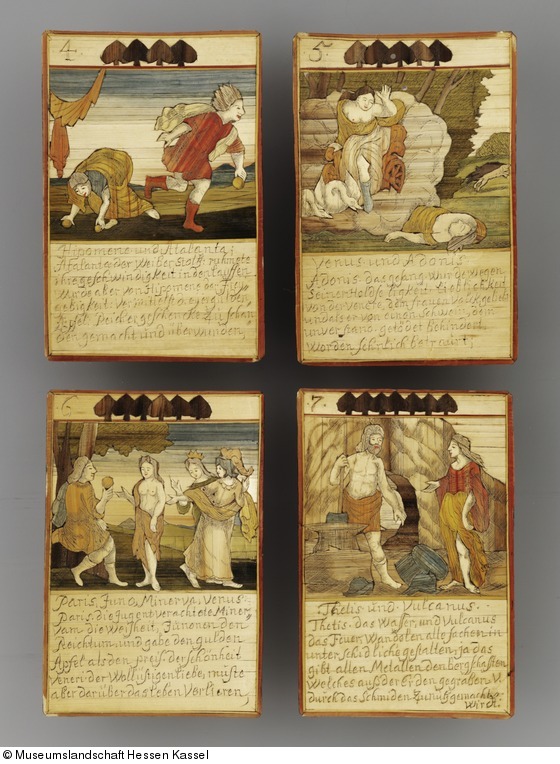 4
Hipomene und Atalanta;
Atalanta der Weiber Stoltz rühmete
ihre geschwindigkeit in den lauffen
Wurde aber von Hipomene der
gebigkeit
Apffel zu schan
den gemacht und überwunden,
5
Venus und Adonis
Adonis das gang wurde wegen
Seiner Holdseligkeit Lieblichkeit
von der Venere, dem frauen Volck geliebt
und als er von einem Schwein, dem
getödet
worden betraurt,
6
Paris, Juno, Minerva, Venus.
Paris, die Tugent verachtete Miner
vam die Weißheit, Junonen den
Reichtum und gabe den gulden
Apfel als den preiß der schönheit
Veneri der Wollüstigen liebe, müste
aber darüber das leben Verlieren,
7.
Thetis und Vulcanus.
Thetis das Wasser, und Vulcanus
das Feuer, Wandlen alle sachen in
unterschidliche gestalten, ja das
gibt allen Metallen den
Welches auß der Erden gegraben V.
durch das Schmiden Zu nutz gemacht
Wird.
© Museumslandschaft Hessen Kassel